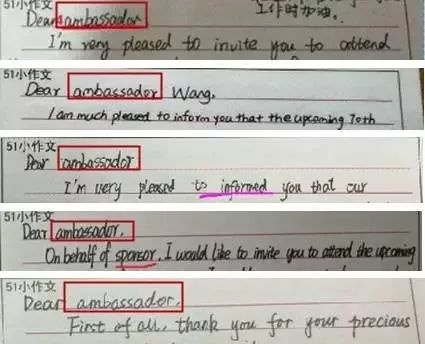 51小作文
工作时加油。
Dear ambassador
I'm very pleased to invite you to attend
51小作文
Dear ambassador Wang,
I am much pleased to inform you that the upcoming 70th
51小作文
Dear ambassador,
I'm very pleased to informed you that our
51小作文
Dear ambassador,
On behalf of sponsor, I would like to invite you to attend the upcoming
51小作文
Dear ambassador,
First of all, thank you for your precious